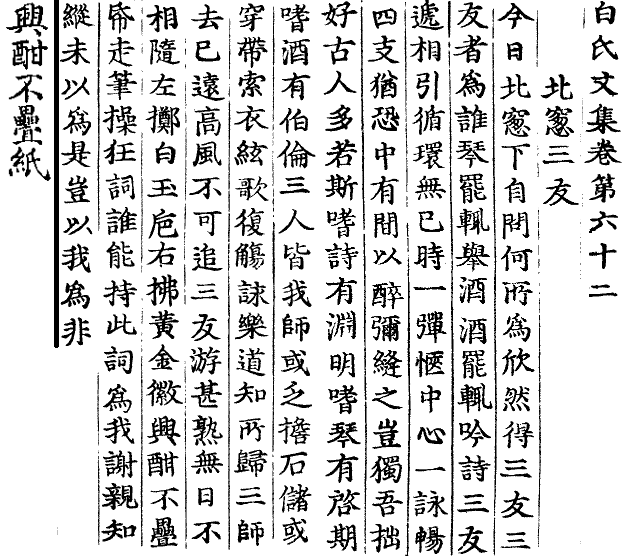 白氏文集卷第六十二
北窓三友
今日北窓下自問何所為欣然得三友三
友者為誰琴罷輒舉酒酒罷輒吟詩三友
遞相引循環無已時一彈愜中心一詠暢
四支猶恐中有間以醉彌縫之豈獨吾拙
好古人多若斯嗜詩有淵明嗜琴有啓期
嗜酒有伯倫三人皆我師或乏擔石儲或
穿帶索衣絃歌復觴詠樂道知所歸三師
去已遠高風不可追三友游甚熟無日不
相隨左擲白玉巵右拂黃金徽興酣不疊
帋走筆操狂詞誰能持此詞為我謝親知
縱未以為是豈以我為非
興酣不疊紙